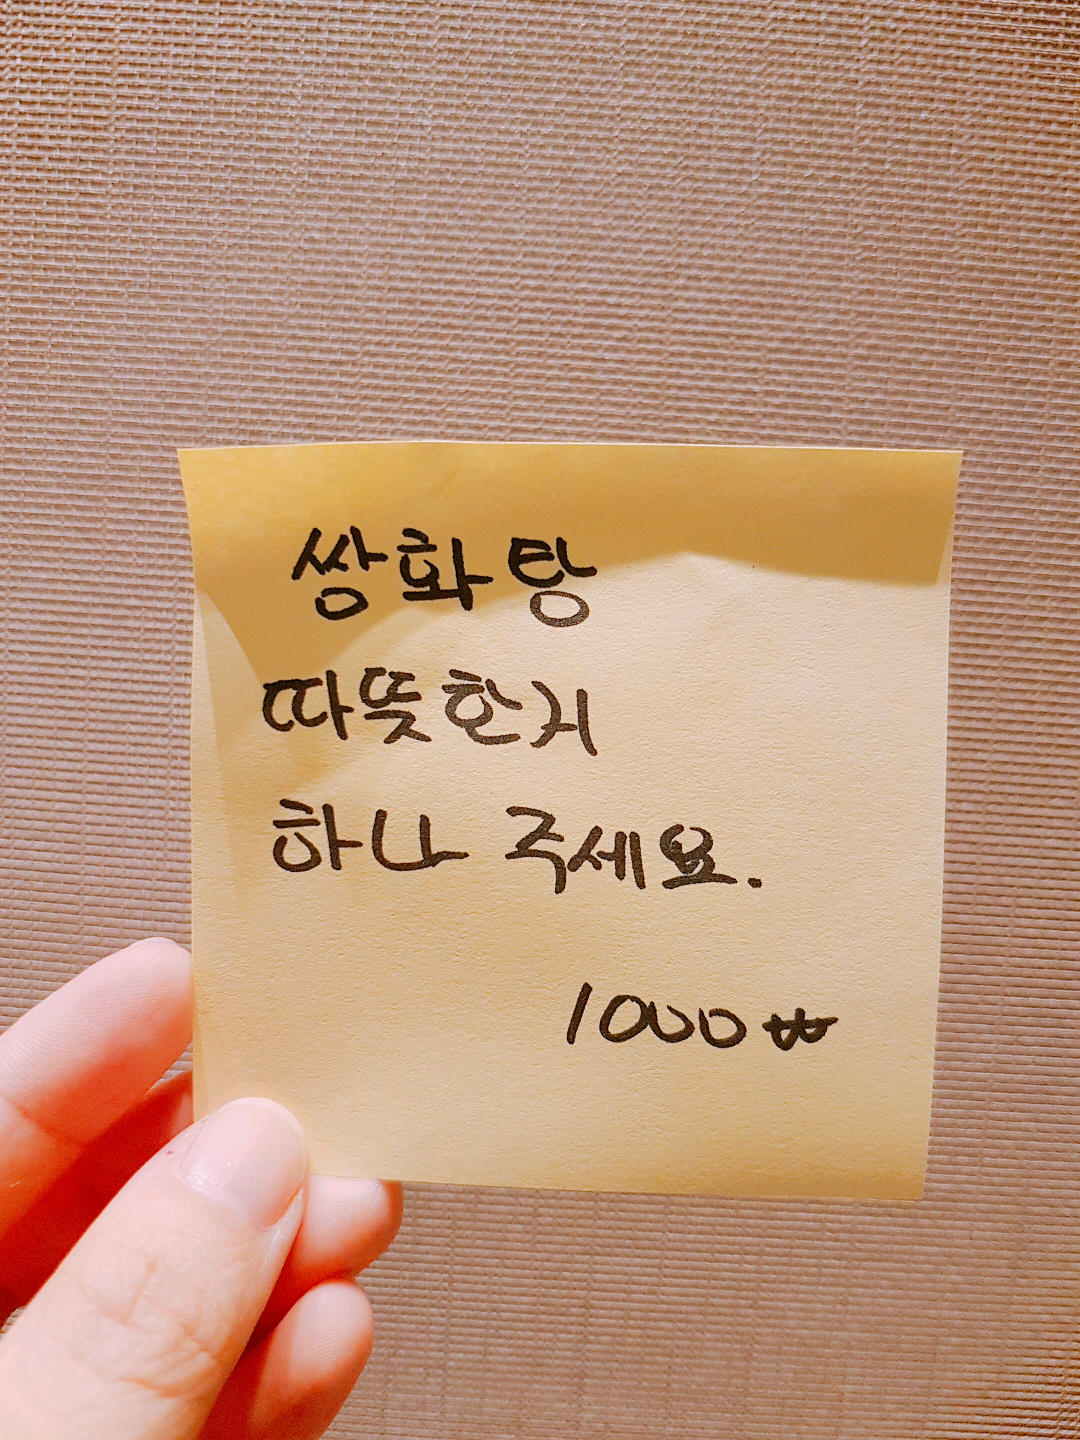 쌍화탕
따뜻한거
하나 주세요.
1000₩